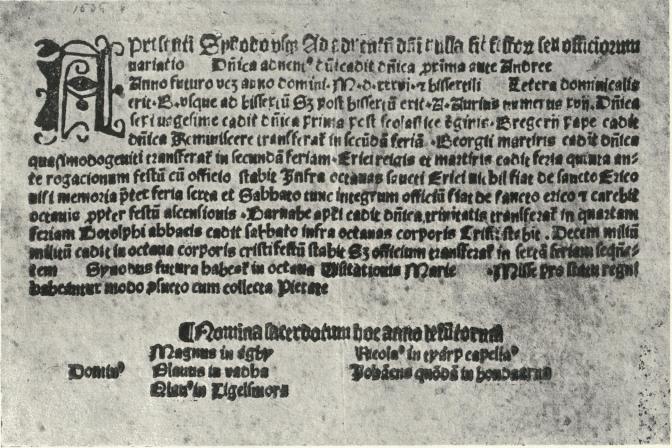 A presenti Synodo vsq; Ad aduentū dñi nulla fit festorū seu officiorum
variatio Dñica aduent⁹ dñi cadit dñica prima ante Andree
Anno futuro vcz anno domini · M · d · xxvij · bissextili Letera dominicalis
erit · G · vsque ad bissextū Sz post bissextū erit · A · Aurius numerus xvij. Dñica
septuagesime cadit dñica prima post scolastice v̄ginis · Gregorij pape cadit
dñica Reminiscere transferat̄ in secūda feriā · Georgii martiris cadit dñica
quasimodogeniti transferat̄ in secundam feriam · Erici regis et martiris cadit feria quinta an-
te rogacionum festū cū officio stabit Infra octauas sancti Erici nichil fiat de sancto Erico
nisi memoria p̄ter feria sexta et Sabbato tunc integrum officiū fiat de sancto erico ⁊ carebit
octauis propter festū ascensionis · Barnabe apłi cadit dñica trinitatis transferat̄ in quartam
feriam Botolphi abbatis cadit sabbato infra octauas corporis Cristi stabit · Decem milium
militū cadit in octaua corporis cristi festū stabit Sz officium transferat̄ in sextā feriam seqñ-
tem Synodus futura habeat̄ in octaua Visitationis Marie · Misse pro statu regni
habeantur modo ꝯsueto cum collecta Pietate
Nomina sacerdotum hoc anno defūctorum
Magnus in ägby Nicola⁹ in capella⁹
Domin⁹ Olauus in vadba Johānes quōdā in
Olau⁹ in Tigelsmora